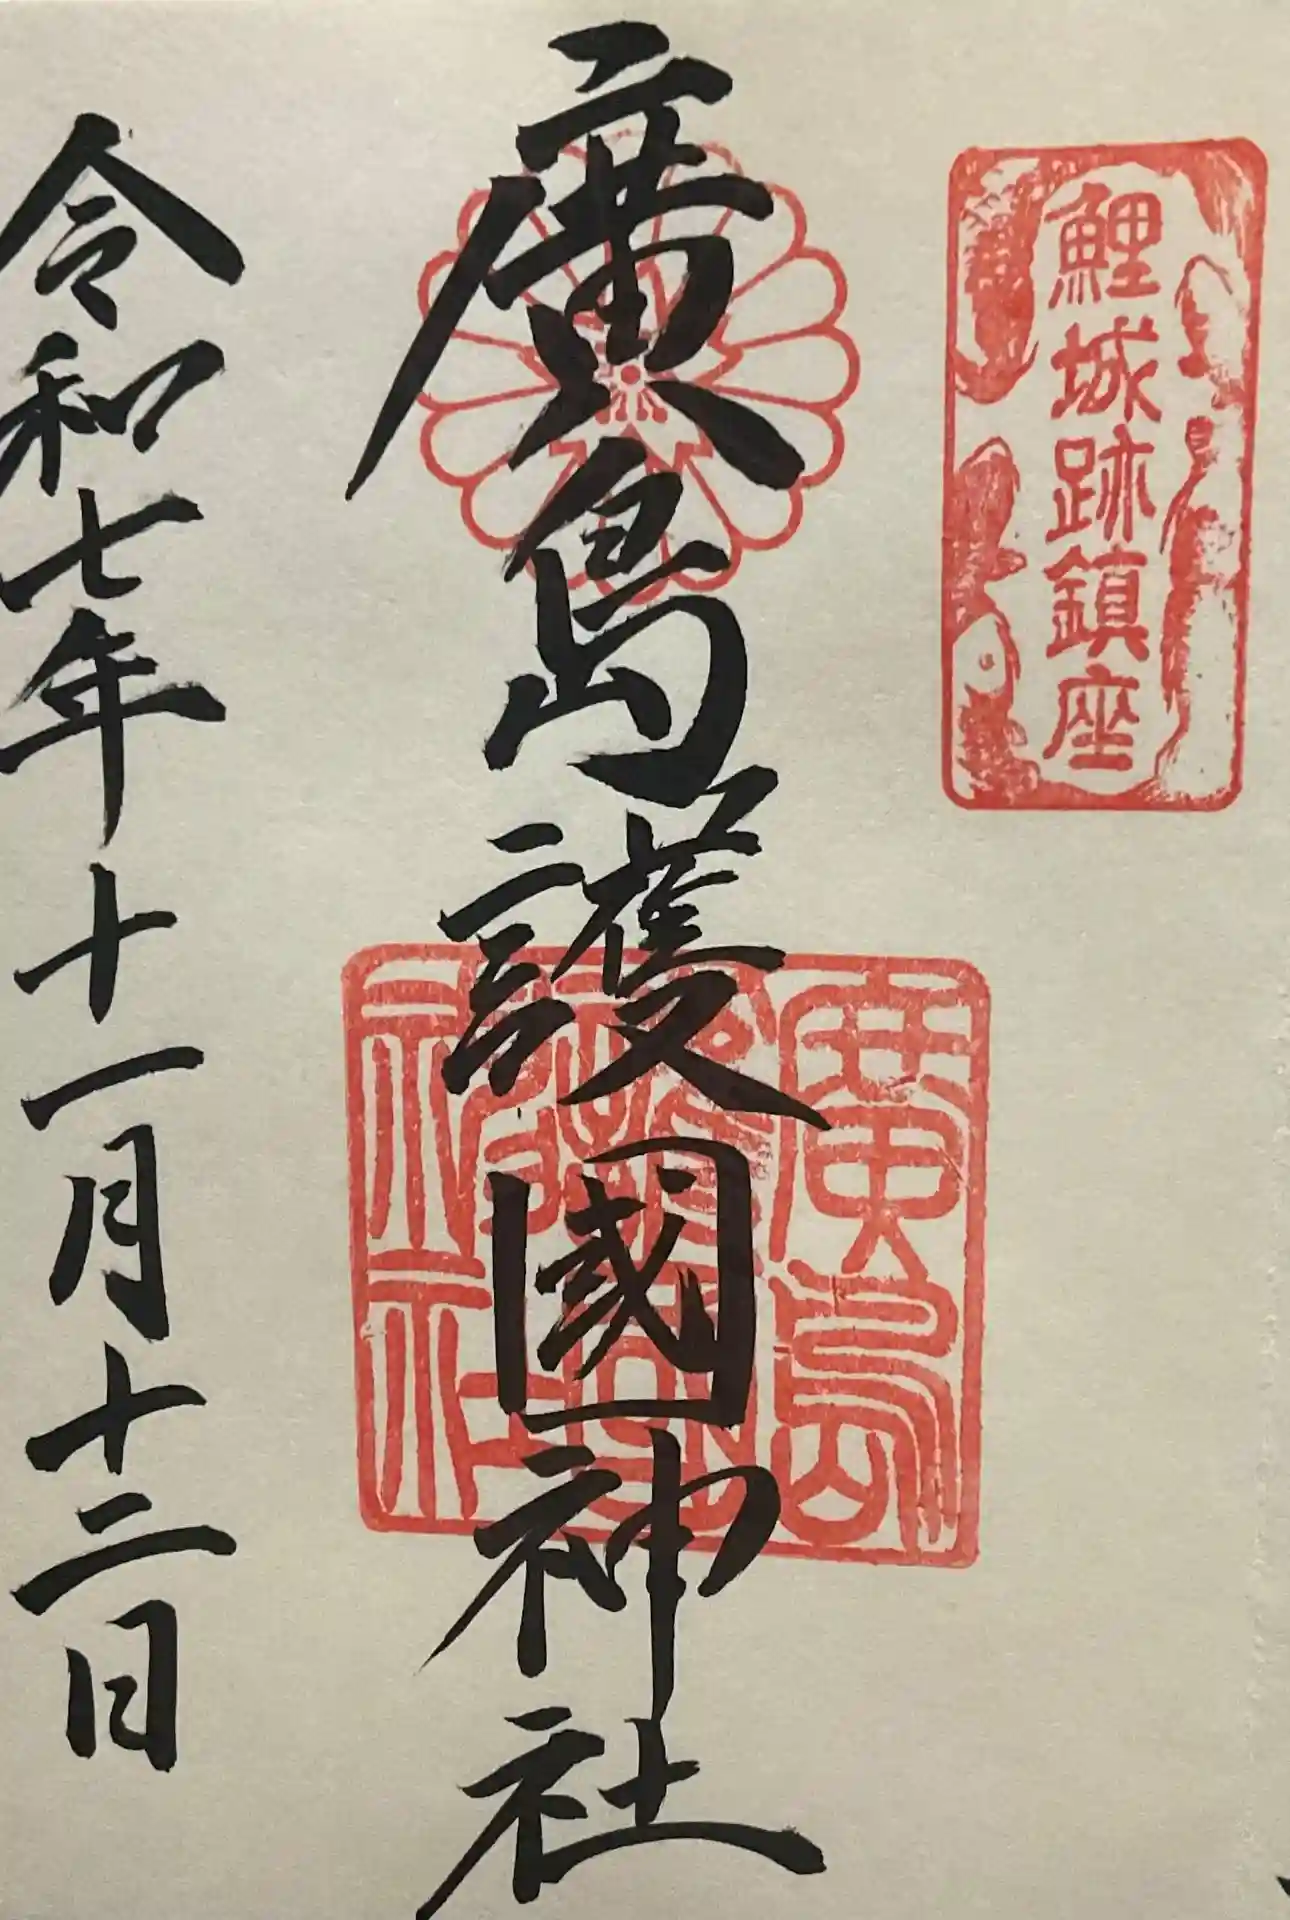 鯉城跡鎮座
廣島護國神社
廣島
護國
神社
令和七年十一月十二日